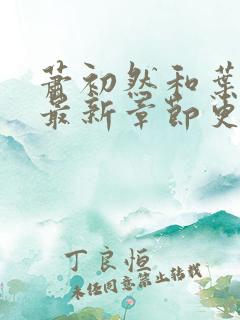 萧初然和葉
最新章節更
丁良恒
未经同意禁止转载